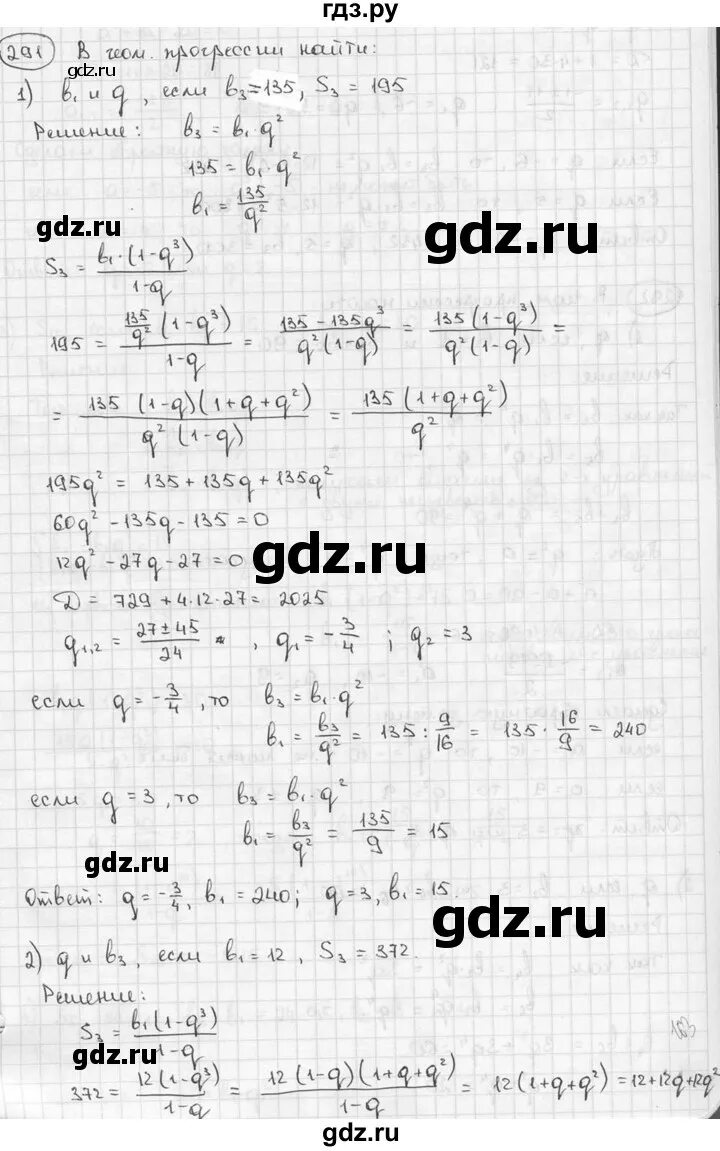 гдз.ру
291 В геом. прогрессии найти:
1) b₁ и q, если b₃=135, S₃ = 195
Решение: b₃ = b₁·q²
135 = b₁·q²
b₁ = 135/q²
gdz.ru
gdz.ru
S₃ = b₁·(1-q³)/1-q
195 = 135/q² (1-q³)/1-q = 135-135q³/q²(1-q) = 135(1-q³)/q²(1-q) =
= 135 (1-q)(1+q+q²)/q² (1-q) = 135(1+q+q²)/q²
195q² = 135+135q+135q²
60q² -135q-135=0
gdz.ru
12q² -27q-27=0
D = 729+4·12·27= 2025
q₁,₂ = 27±45/24 , q₁=-3/4 ; q₂ = 3
если q=-3/4, то b₃=b₁·q²
b₁ = b₃/q² = 135 : 9/16 = 135 · 16/9 = 240
если q=3, то b₃=b₁·q²
gdz.ru
b₁ = b₃/q² = 135/9 = 15
Ответ: q=-3/4, b₁=240; q=3, b₁=15.
gdz.ru
2) q и b₃, если b₁=12, S₃=372.
Решение:
S₃ = b₁(1-q³)/1-q
163
gdz.ru
gdz.ru
372 = 12(1-q³)/1-q = 12(1-q)(1+q+q²)/1-q = 12(1+q+q²)=12+12q+12q²
гдз.ру